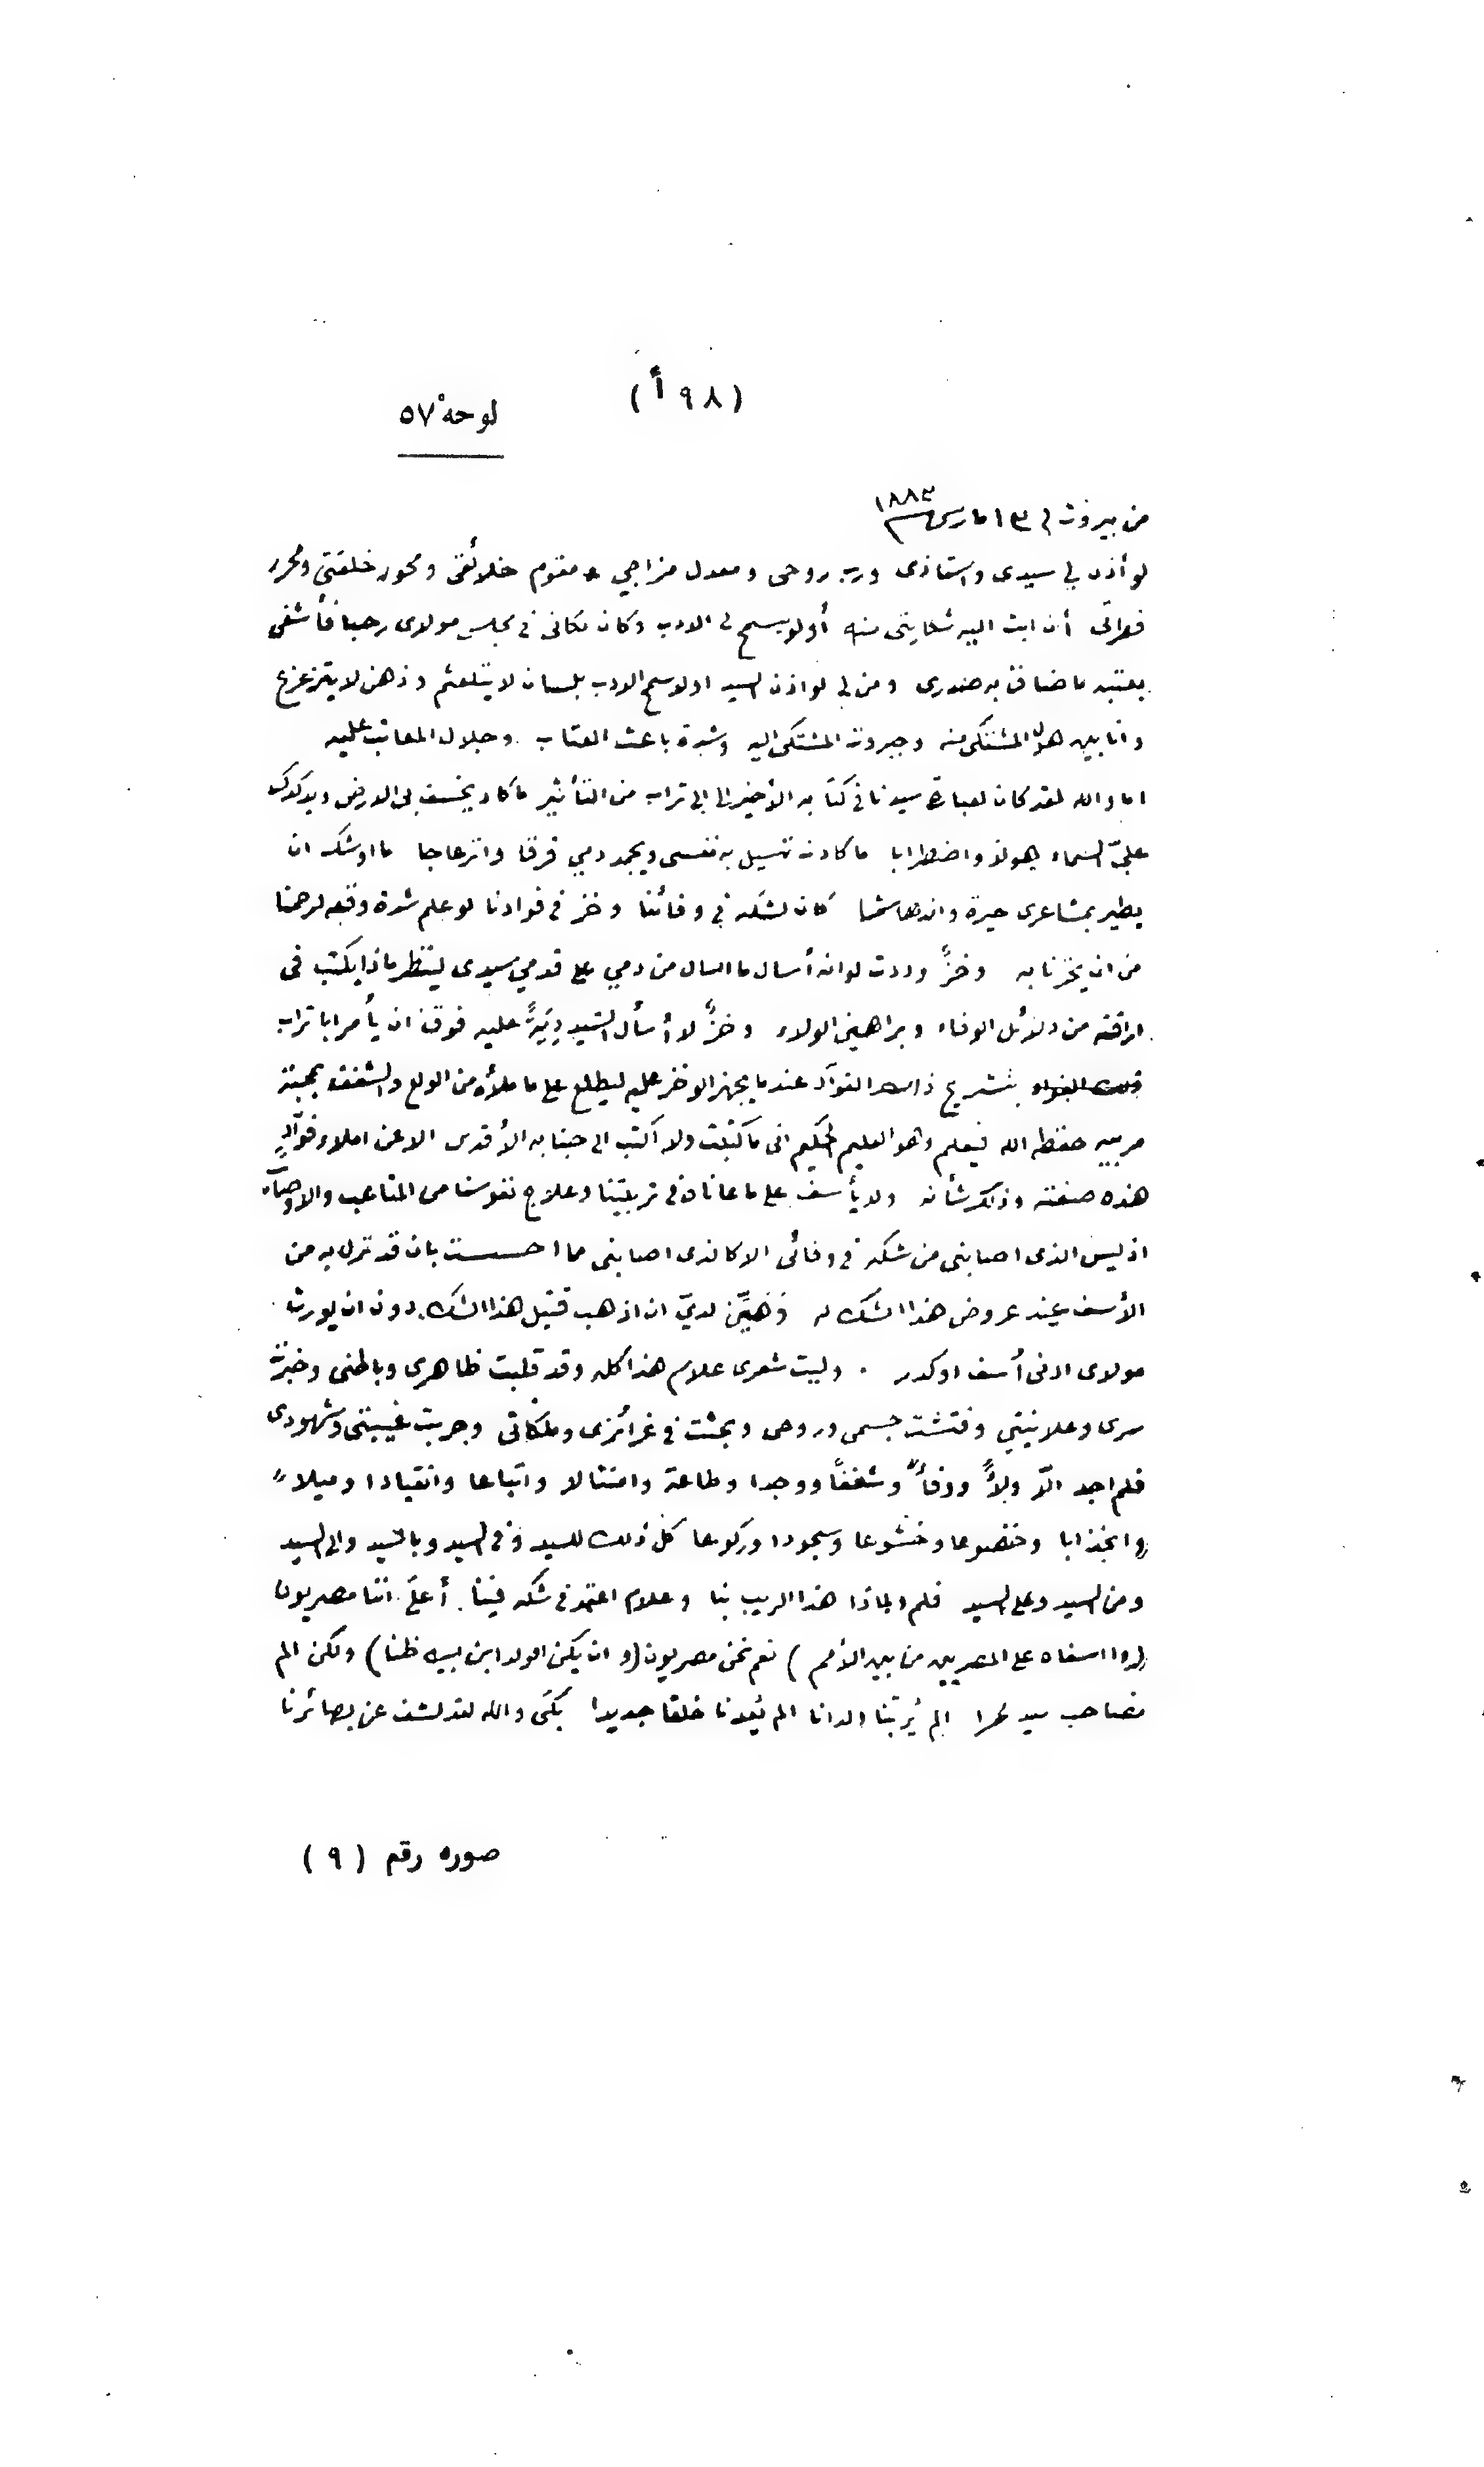 (٩٨ أ)
لوحة ٥٧
من بيروت في ١٣ مارس ١٨٨٣
لو أذن لي سيدى واستاذى ورب روحى ومعدل مزاجي ومقوم خلائقى ومحول خلقتي ومحرر
فطراتى أن ابث اليه شكايتى منه أو لو يسمح لى الادب وكان مكانى فى مجلس مولاى رحبا فأشفى
بعتبه ما ضاق به صدرى ومن لى لو اذن السيد او لو سمح الادب بلسان لا يتلعثم وذهن لا يتزعزع
وانا بين هول المشتكى منه وجبروت المشتكى اليه وشدة باعث العتاب وجلال المعاتب عليه
اما والله لقد كان لعبارة سيدنا فى كتابه الأخير الى ابى تراب من التأثير ما كاد يخسف بى الارض ويدكدك
عليّ السماء هولا واضطرابا ما كادت تسيل به نفسى ويجمد دمي فرقا وانزعاجا ما اوشك ان
يطير بمشاعرى حيرة واندهاشا كان لشكه في وفائنا وخز فى فوادنا لو علم شدة وقعه لرحمنا
من ان يخزنا به وخزً وددت لو انه أسال ما اسال من دمي على قدمي سيدى لينظر ماذا يكتب فى
اراقته من دلائل الوفاء وبراهين الولاء وخزً لا أسأل السيد دِيَةً عليه فوق ان يأمر ابا تراب
بتشريح ذاك الفوآد عندما يجهز الوخز عليه ليطلع على ما ملأه من الولع والشغف بمحبة
مربيه حفظه الله فيعلم وهو العليم الحكيم انى ما كتبت ولا اكتب الى جنابه الأقدس الا عن املاء فوآدٍ
هذه صفته وذلك شأنه ولا يأسف على ما عاناه فى تربيتنا وعلاج نفوسنا من المتاعب والاوصآب
اذ ليس الذى اصابنى من شكه فى وفائى الا كالذى اصابنى مما احسست بان قد نزل به من
الأسف عند عروض هذا الشك له وَهَيِّن لديّ ان اذهب قتيل هذا الشك دون ان يورث
مولاى ادنى أسف او كدر . وليت شعرى علام هذا كله وقد قلبت ظاهرى وباطنى وخبرت
سرى وعلانيتي وفتشت جسمى وروحى وبحثت فى غرائزى وملكاتى وجربت غيبتى وشهودى
فلم اجد الّا ولآًء ووفآًء وشغفاً ووجدا وطاعة وامتثالا واتباعا وانقيادا وميلاً
وانجذابا وخضوعا وخشوعا وسجودا وركوعا كل ذلك للسيد وفى السيد وبالسيد والى السيد
ومن السيد وعلى السيد فلم ولماذا هذا الريب بنا وعلام اعتمد فى شكه فينا . أعلى اننا مصريون
(وا اسفاه على المصريين من بين الأمم) نعم نحن مصريون (وان يكن الولد ابن ابيه ظنا) ولكن الم
نصاحب سيد ... الم يُربّنا الدانا الم يُعدنا خلقا جديدا بلَى والله لقد كشف عن بصائرنا
صوره رقم (٩)